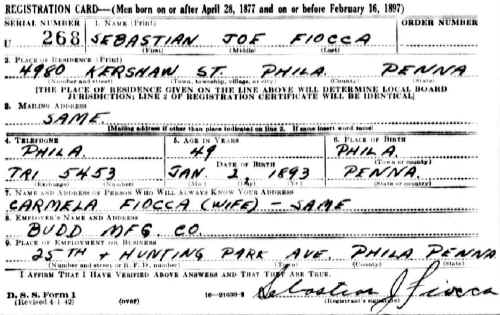 REGISTRATION CARD—(Men born on or after April 28, 1877 and on or before February 16, 1897)
SERIAL NUMBER 1. NAME (Print) ORDER NUMBER
U 268 SEBASTIAN JOE FIOCCA
(First) (Middle) (Last)
2. PLACE OF RESIDENCE (Print)
4980 KERSHAW ST. PHILA PENNA
(Number and street) (Town, township, village, or city) (County) (State)
[THE PLACE OF RESIDENCE GIVEN ON THE LINE ABOVE WILL DETERMINE LOCAL BOARD
JURISDICTION; LINE 2 OF REGISTRATION CERTIFICATE WILL BE IDENTICAL]
3. MAILING ADDRESS
SAME.
[Mailing address if other than place indicated on line 2. If same insert word same]
4. TELEPHONE 5. AGE IN YEARS 6. PLACE OF BIRTH
PHILA. 49 PHILA.
DATE OF BIRTH (Town or county)
TRI 5453 JAN. 2, 1893 PENNA.
(Exchange) (Number) (Mo.) (Day) (Yr.) (State or country)
7. NAME AND ADDRESS OF PERSON WHO WILL ALWAYS KNOW YOUR ADDRESS
CARMELA FIOCCA (WIFE) - SAME
8. EMPLOYER'S NAME AND ADDRESS
BUDD MFG. CO.
9. PLACE OF EMPLOYMENT OR BUSINESS
25TH + HUNTING PARK AVE. PHILA PENNA
(Number and street or R. F. D. number) (Town) (County) (State)
I AFFIRM THAT I HAVE VERIFIED ABOVE ANSWERS AND THAT THEY ARE TRUE.
D. S. S. Form 1
(Revised 4-1-42) (over) 16—21630-2 Sebastian J Fiocca
(Registrant's signature)